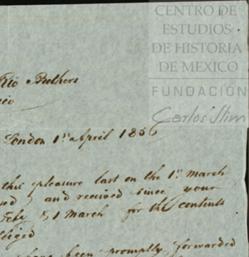 CENTRO DE
ESTUDIOS
DE HISTORIA
DE MEXICO
FUNDACIÓN
Carlos Slim
Rio Brothers
London 1st April 1856
this pleasure last on the 1st March
and received since your
1 March for the contents
been promptly forwarded